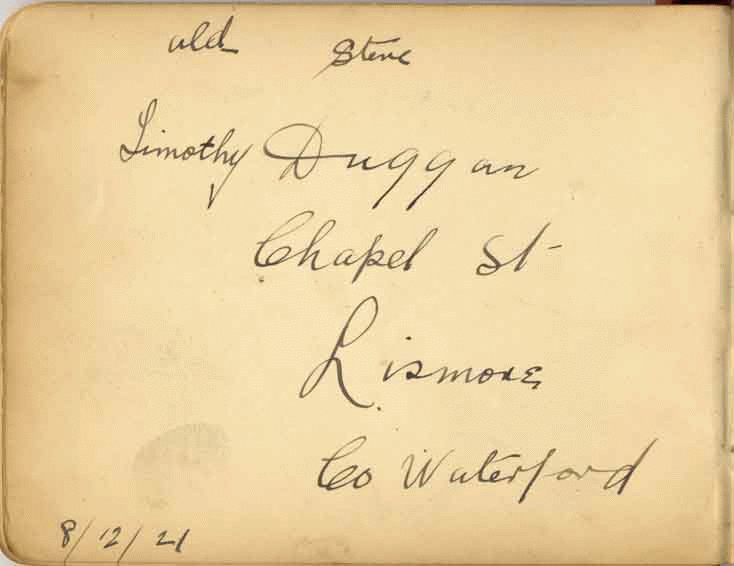 ald Steve
Timothy Duggan
Chapel St
Lismore
Co Waterford
8/12/21